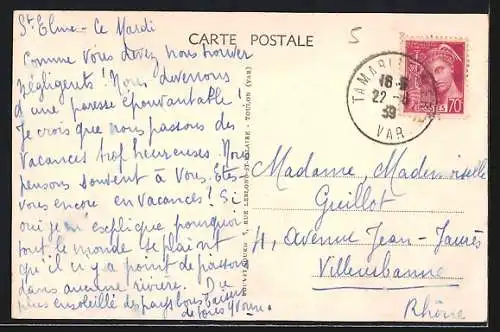 St Elme - Ce Mardi
Comme vous devez nous trouver
négligents ! Nous devenons
d'une paresse épouvantable !
Je crois que nous passons des
vacances trop heureuses. Nous
pensons souvent à vous. Êtes
vous encore en vacances ? Si
oui je m'explique pourquoi
tout le monde se plaint
qu'il n'y a point de poissons
dans aucune rivière. Du
plus ensoleillé des pays bons baisers
de tous Yvonne
CARTE POSTALE
5
TAMARIS
22
39
VAR
POSTES 70
TOULON (VAR)
Madame, Mademoiselle
Guillot
41, Avenue Jean-Jaurès
Villeurbanne
Rhône